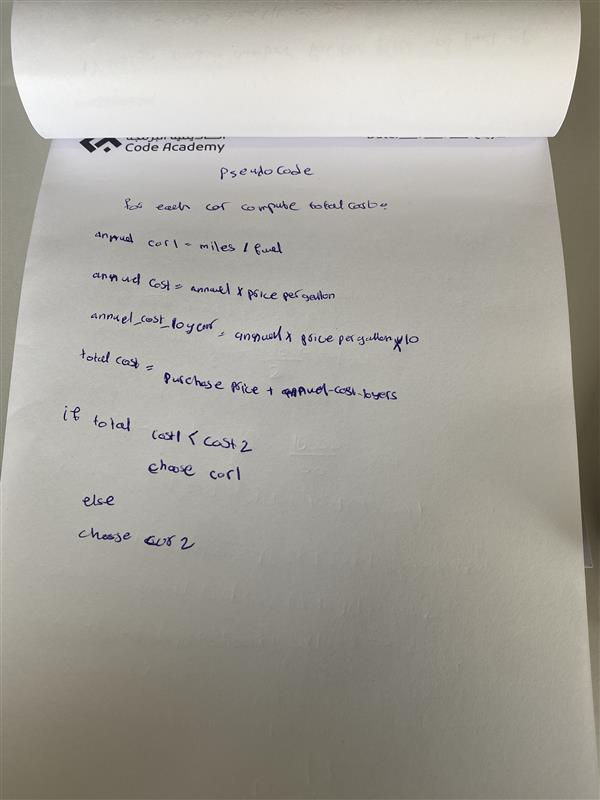 أكاديمية البرمجة
Code Academy
Date:
Pseudo Code
for each car compute total cost:
annual car1 = miles / fuel
annual cost = annual x price per gallon
annual_cost_10year = annual x price per gallon x 10
total cost =
purchase price + annual-cost-10yers
if total cost1 < cost 2
choose car1
else
choose car 2